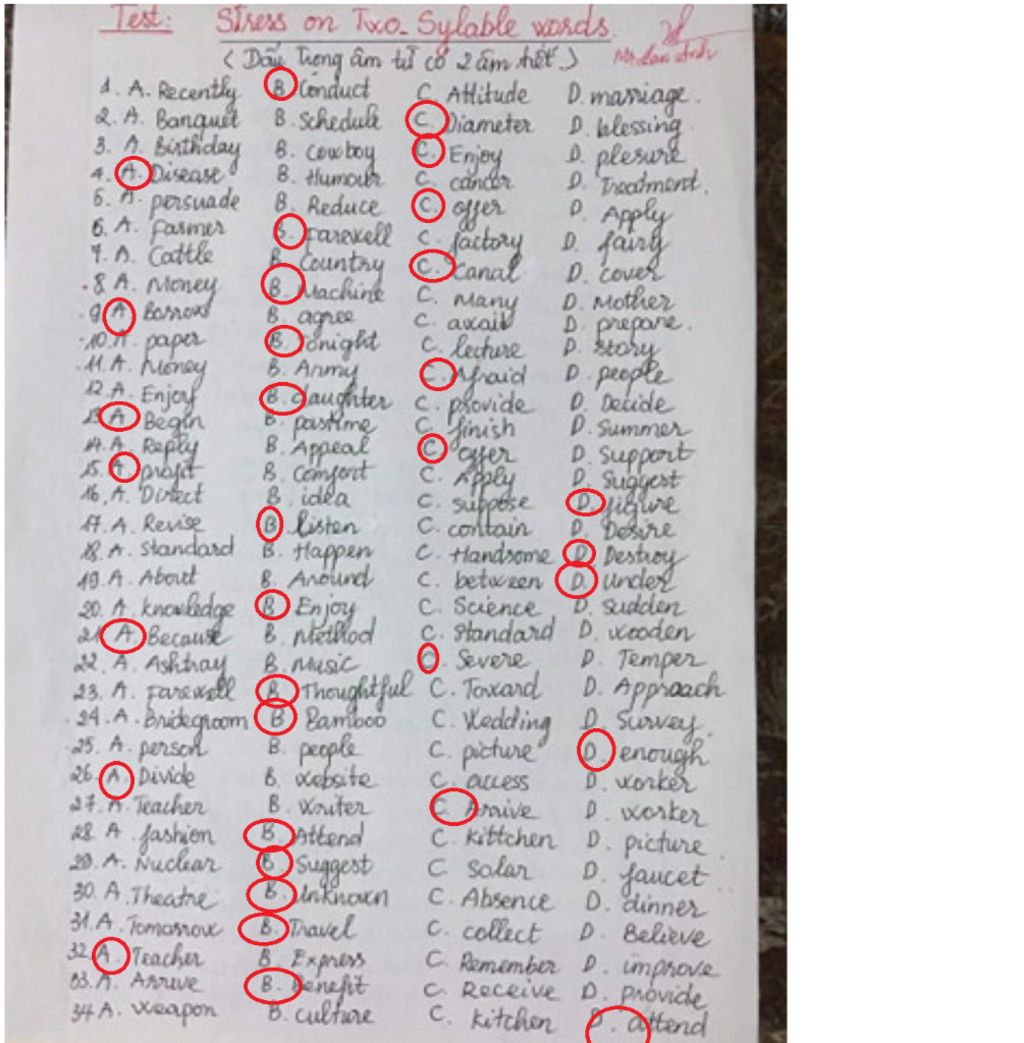 Test: Stress on Two_Sylable words.
(Dấu trọng âm từ có 2 âm tiết.)
1. A. Recently B. Conduct C. Attitude D. marriage.
2. A. Banquet B. Schedule C. Diameter D. blessing.
3. A. Birthday B. Cowboy C. Enjoy D. plesure
4. A. Disease B. Humour C. cancer D. Treatment.
5. A. persuade B. Reduce C. offer D. Apply
6. A. Farmer B. Farewell C. factory D. fairy
7. A. Cattle B. Country C. Canal D. cover
8. A. Money B. Machine C. Many D. Mother
9. A. Borrow B. agree C. await D. prepare.
10. A. paper B. Tonight C. lecture D. story
11. A. Money B. Army C. Afraid D. people
12. A. Enjoy B. daughter C. provide D. Decide
13. A. Begin B. pastime C. finish D. Summer
14. A. Reply B. Appeal C. offer D. Support
15. A. profit B. Comfort C. Apply D. Suggest
16. A. Direct B. idea C. suppose D. figure
17. A. Revise B. listen C. contain D. Desire
18. A. Standard B. Happen C. Handsome D. Destroy
19. A. About B. Around C. between D. Under
20. A. knowledge B. Enjoy C. Science D. Sudden
21. A. Because B. Method C. Standard D. wooden
22. A. Ashtray B. Music C. Severe D. Temper
23. A. Farewell B. Thoughtful C. Toward D. Approach
24. A. Bridegroom B. Bamboo C. Wedding D. Survey.
25. A. person B. people C. picture D. enough
26. A. Divide B. website C. access D. worker
27. A. Teacher B. Writer C. Arrive D. worker
28. A. fashion B. Attend C. Kittchen D. picture
29. A. Nuclear B. Suggest C. Solar D. faucet
30. A. Theatre B. Unknown C. Absence D. dinner
31. A. Tomorrow B. Travel C. collect D. Believe
32. A. Teacher B. Express C. Remember D. improve
33. A. Arrive B. Benefit C. Receive D. provide
34 A. weapon B. culture C. kitchen D. attend